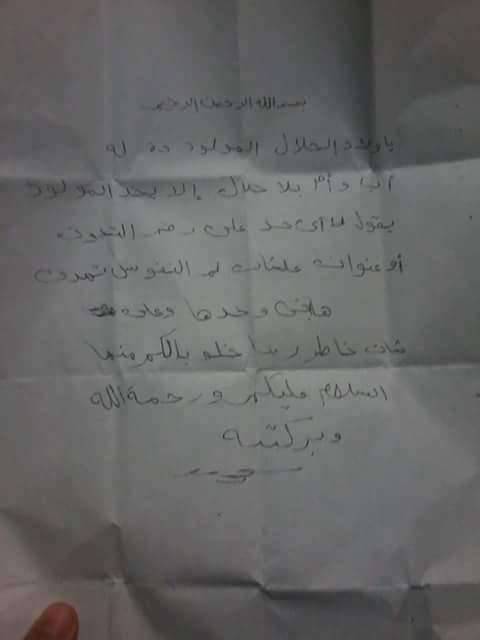 بسم الله الرحمن الرحيم
يا ولاد الحلال المولود ده له
أب وأم بلا حلال إلا يجد المولود
يقول لا أى حد على رقم التلفون
أو عنوان علشان لم النفوس تهدى
هاجى وخدها وعلى
شان خاطر ربنا خلو بالكم منها
السلام عليكم ورحمة الله
وبركته